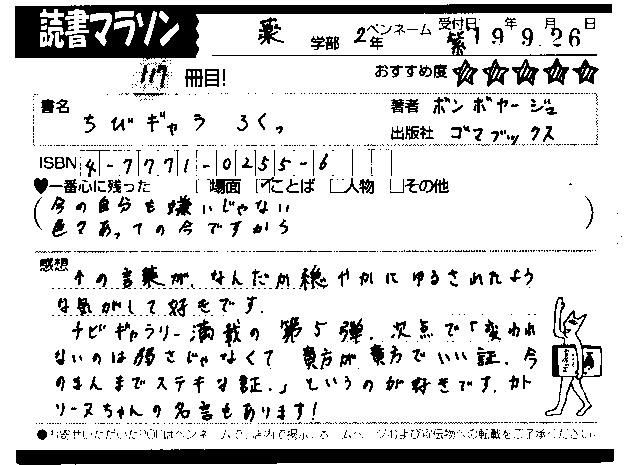 読書マラソン
薬 学部 2年 ペンネーム 紫 受付日 19年 9月 26日
117 冊目! おすすめ度 ★★★★★
書名 ちびギャラ ろくっ
著者 ボンボヤージュ
出版社 ゴマブックス
ISBN 4-7771-0255-6
♥一番心に残った □場面 ☑ことば □人物 □その他
今の自分も嫌いじゃない
色々あっての今ですから
感想
↑の言葉が、なんだか穏やかにゆるされたよう
な気がして好きです。
チビギャラリー満載の第5弾。次点で「変われ
ないのは弱さじゃなくて 貴方が貴方でいい証、今
のまんまでステキな証。」というのが好きです。カト
リーヌちゃんの名言もあります!
●お寄せいただいたPOPはペンネームで、店内で掲示、ホームページおよび宣伝物への転載をご了承ください。